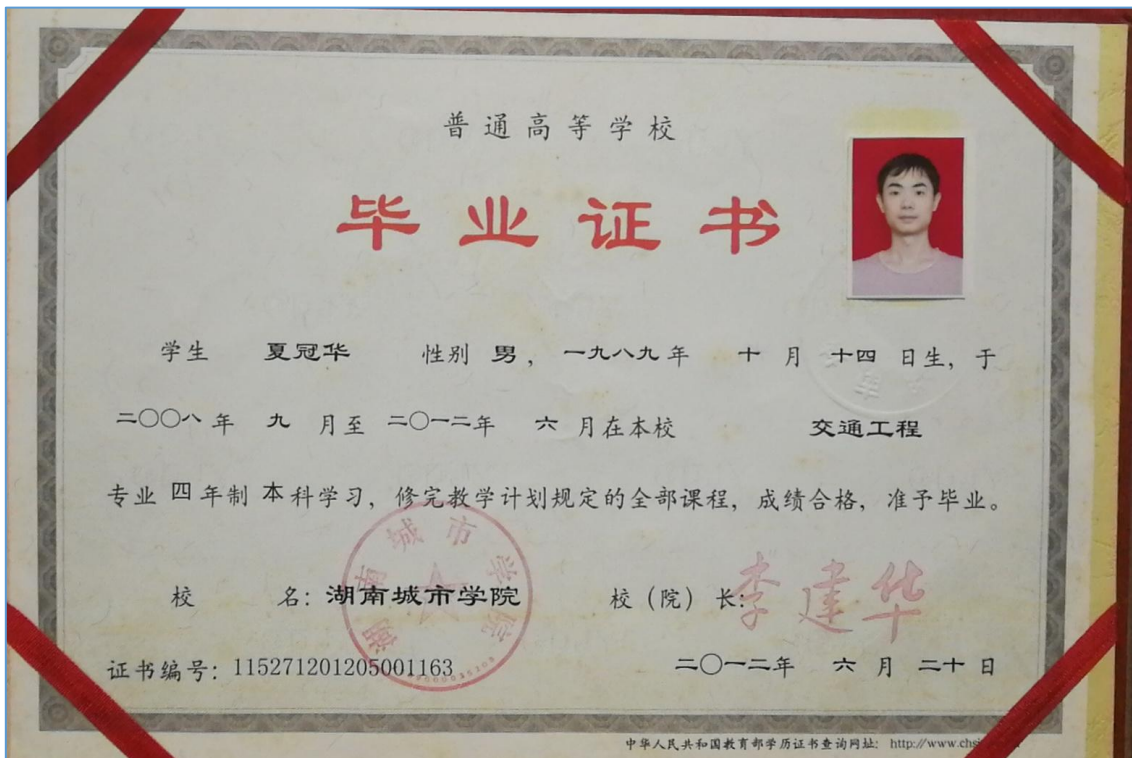 普通高等学校
毕业证书
学生 夏冠华 性别 男，一九八九年 十 月 十四 日生，于
二〇〇八年 九 月至 二〇一二年 六 月在本校 交通工程
专业 四 年制 本 科学习，修完教学计划规定的全部课程，成绩合格，准予毕业。
校 名：湖南城市学院 校（院）长：李建华
湖南城市学院
证书编号：115271201205001163 二〇一二年 六 月 二十 日
中华人民共和国教育部学历证书查询网址： http://www.chsi